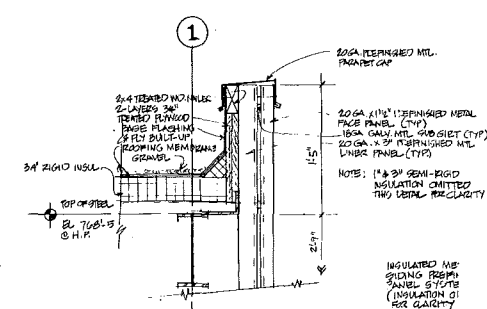 1
20GA. PREFINISHED MTL.
PARAPET CAP
2x4 TREATED WD. NAILER
2-LAYERS 3/4"
TREATED PLYWOOD
BASE FLASHING
PLY BUILT-UP
ROOFING MEMBRANE
GRAVEL
3/4" RIGID INSUL
TOP OF STEEL
EL 768'-5
@ H.P.
20 GA. x 1 1/2" PREFINISHED METAL
FACE PANEL (TYP)
18GA GALV. MTL SUBGIRT (TYP)
20 GA. x 3" PREFINISHED MTL
LINER PANEL (TYP)
NOTE: 1" & 3" SEMI-RIGID
INSULATION OMITTED
THIS DETAIL FOR CLARITY
1'-5"
2'-9"
INSULATED ME
SIDING PREFIN
PANEL SYSTE
(INSULATION O
FOR CLARITY